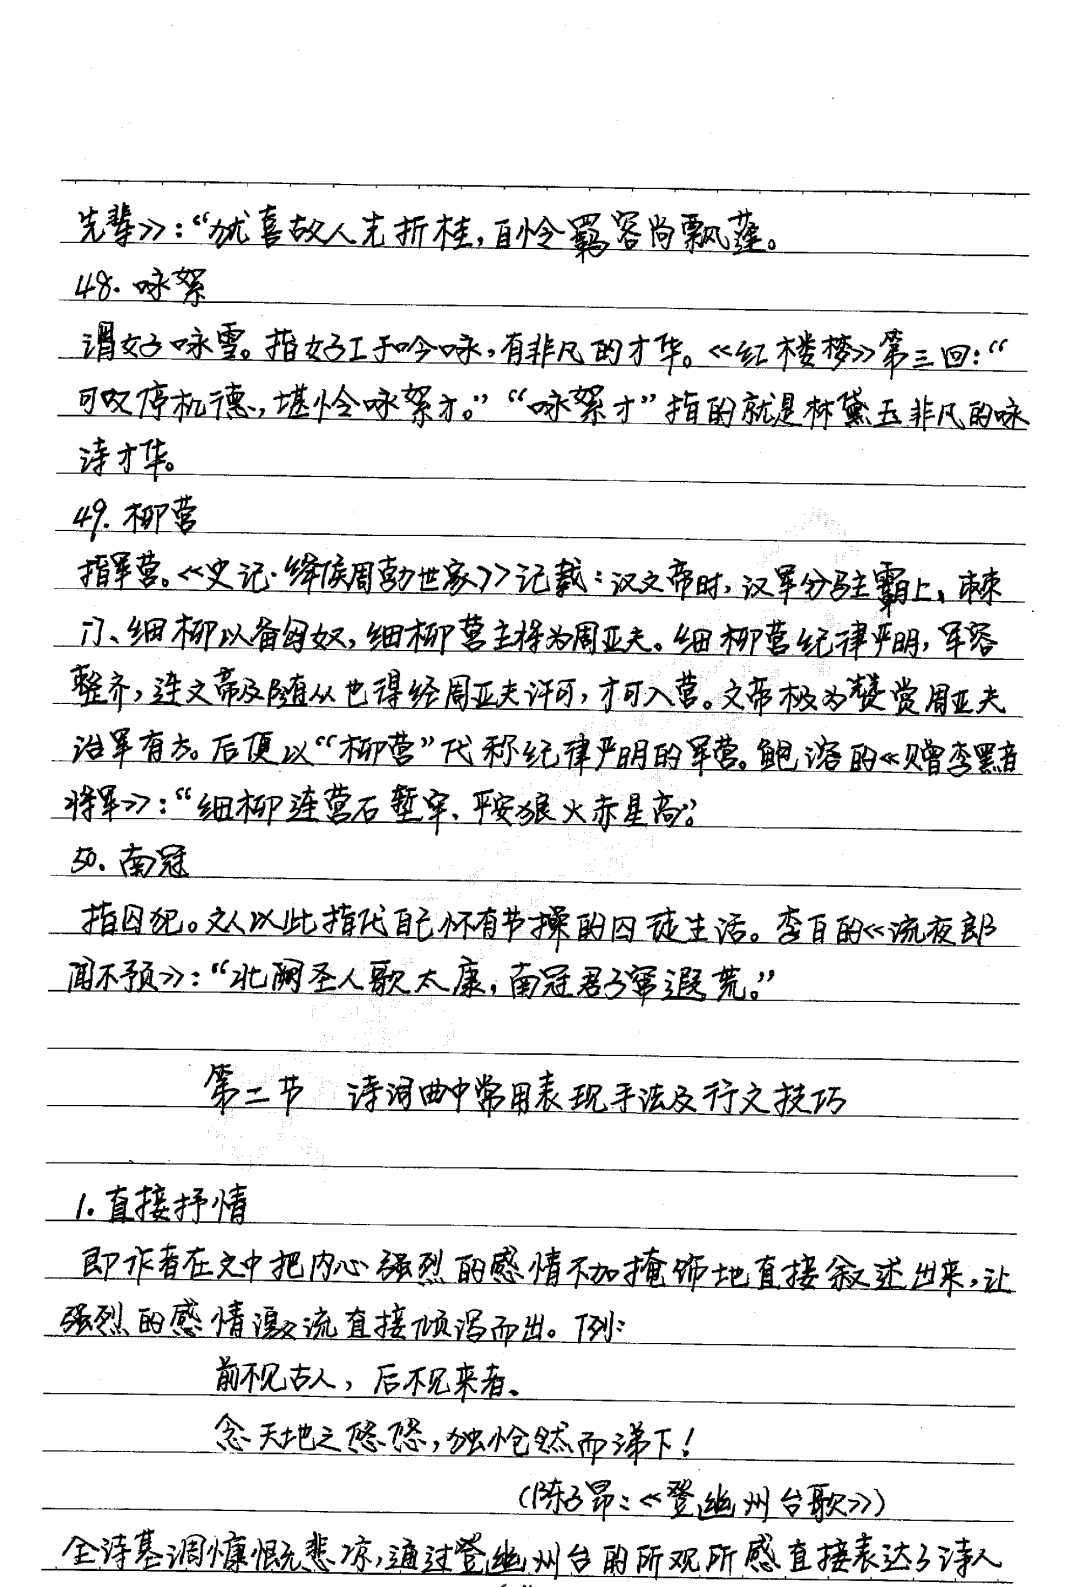 先辈》:“犹喜故人先折桂,自怜羁客尚飘蓬。
48. 咏絮
谓女子咏雪。指女子工于吟咏,有非凡的才华。《红楼梦》第三回:“
可叹停机德,堪怜咏絮才。”“咏絮才”指的就是林黛玉非凡的咏
诗才华。
49. 柳营
指军营。《史记·绛侯周勃世家》记载:汉文帝时,汉军分驻霸上、棘
门、细柳以备匈奴,细柳营主将为周亚夫。细柳营纪律严明,军容
整齐,连文帝及随从也得经周亚夫许可,才可入营。文帝极为赞赏周亚夫
治军有方。后便以“柳营”代称纪律严明的军营。鲍溶的《赠李黑部
将军》:“细柳连营石堑牢,平安狼火赤星高”。
50. 南冠
指囚犯。文人以此指代自己怀有节操的囚徒生活。李白的《流夜郎
闻不预》:“北阙圣人歌太康,南冠君子窜遐荒。”
第二节 诗词曲中常用表现手法及行文技巧
1. 直接抒情
即作者在文中把内心强烈的感情不加掩饰地直接叙述出来,让
强烈的感情激流直接倾泻而出。例:
前不见古人,后不见来者。
念天地之悠悠,独怆然而涕下!
(陈子昂:《登幽州台歌》)
全诗基调慷慨悲凉,通过登幽州台的所观所感直接表达了诗人